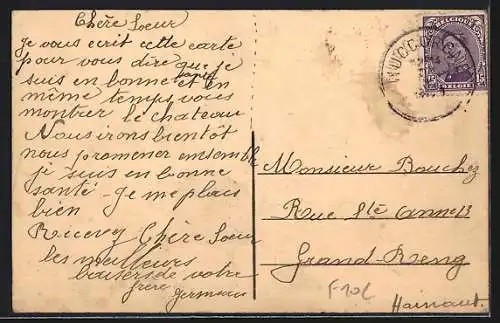 Chère Soeur
Je vous ecrit cette carte
pour vous dire que je
suis en bonne santé et en
même temps vous
montrer le chateau
Nous irons bientôt
nous promener ensemble
je suis en bonne
santé - Je me plais
bien
Recevez Chère Soeur
les meilleurs
baisers de votre
frère
Germain
BELGIQUE
15 15
BELGIË
Monsieur Bouchez
Rue Ste Anne 13
Grand-Reng
F10
Hainaut.